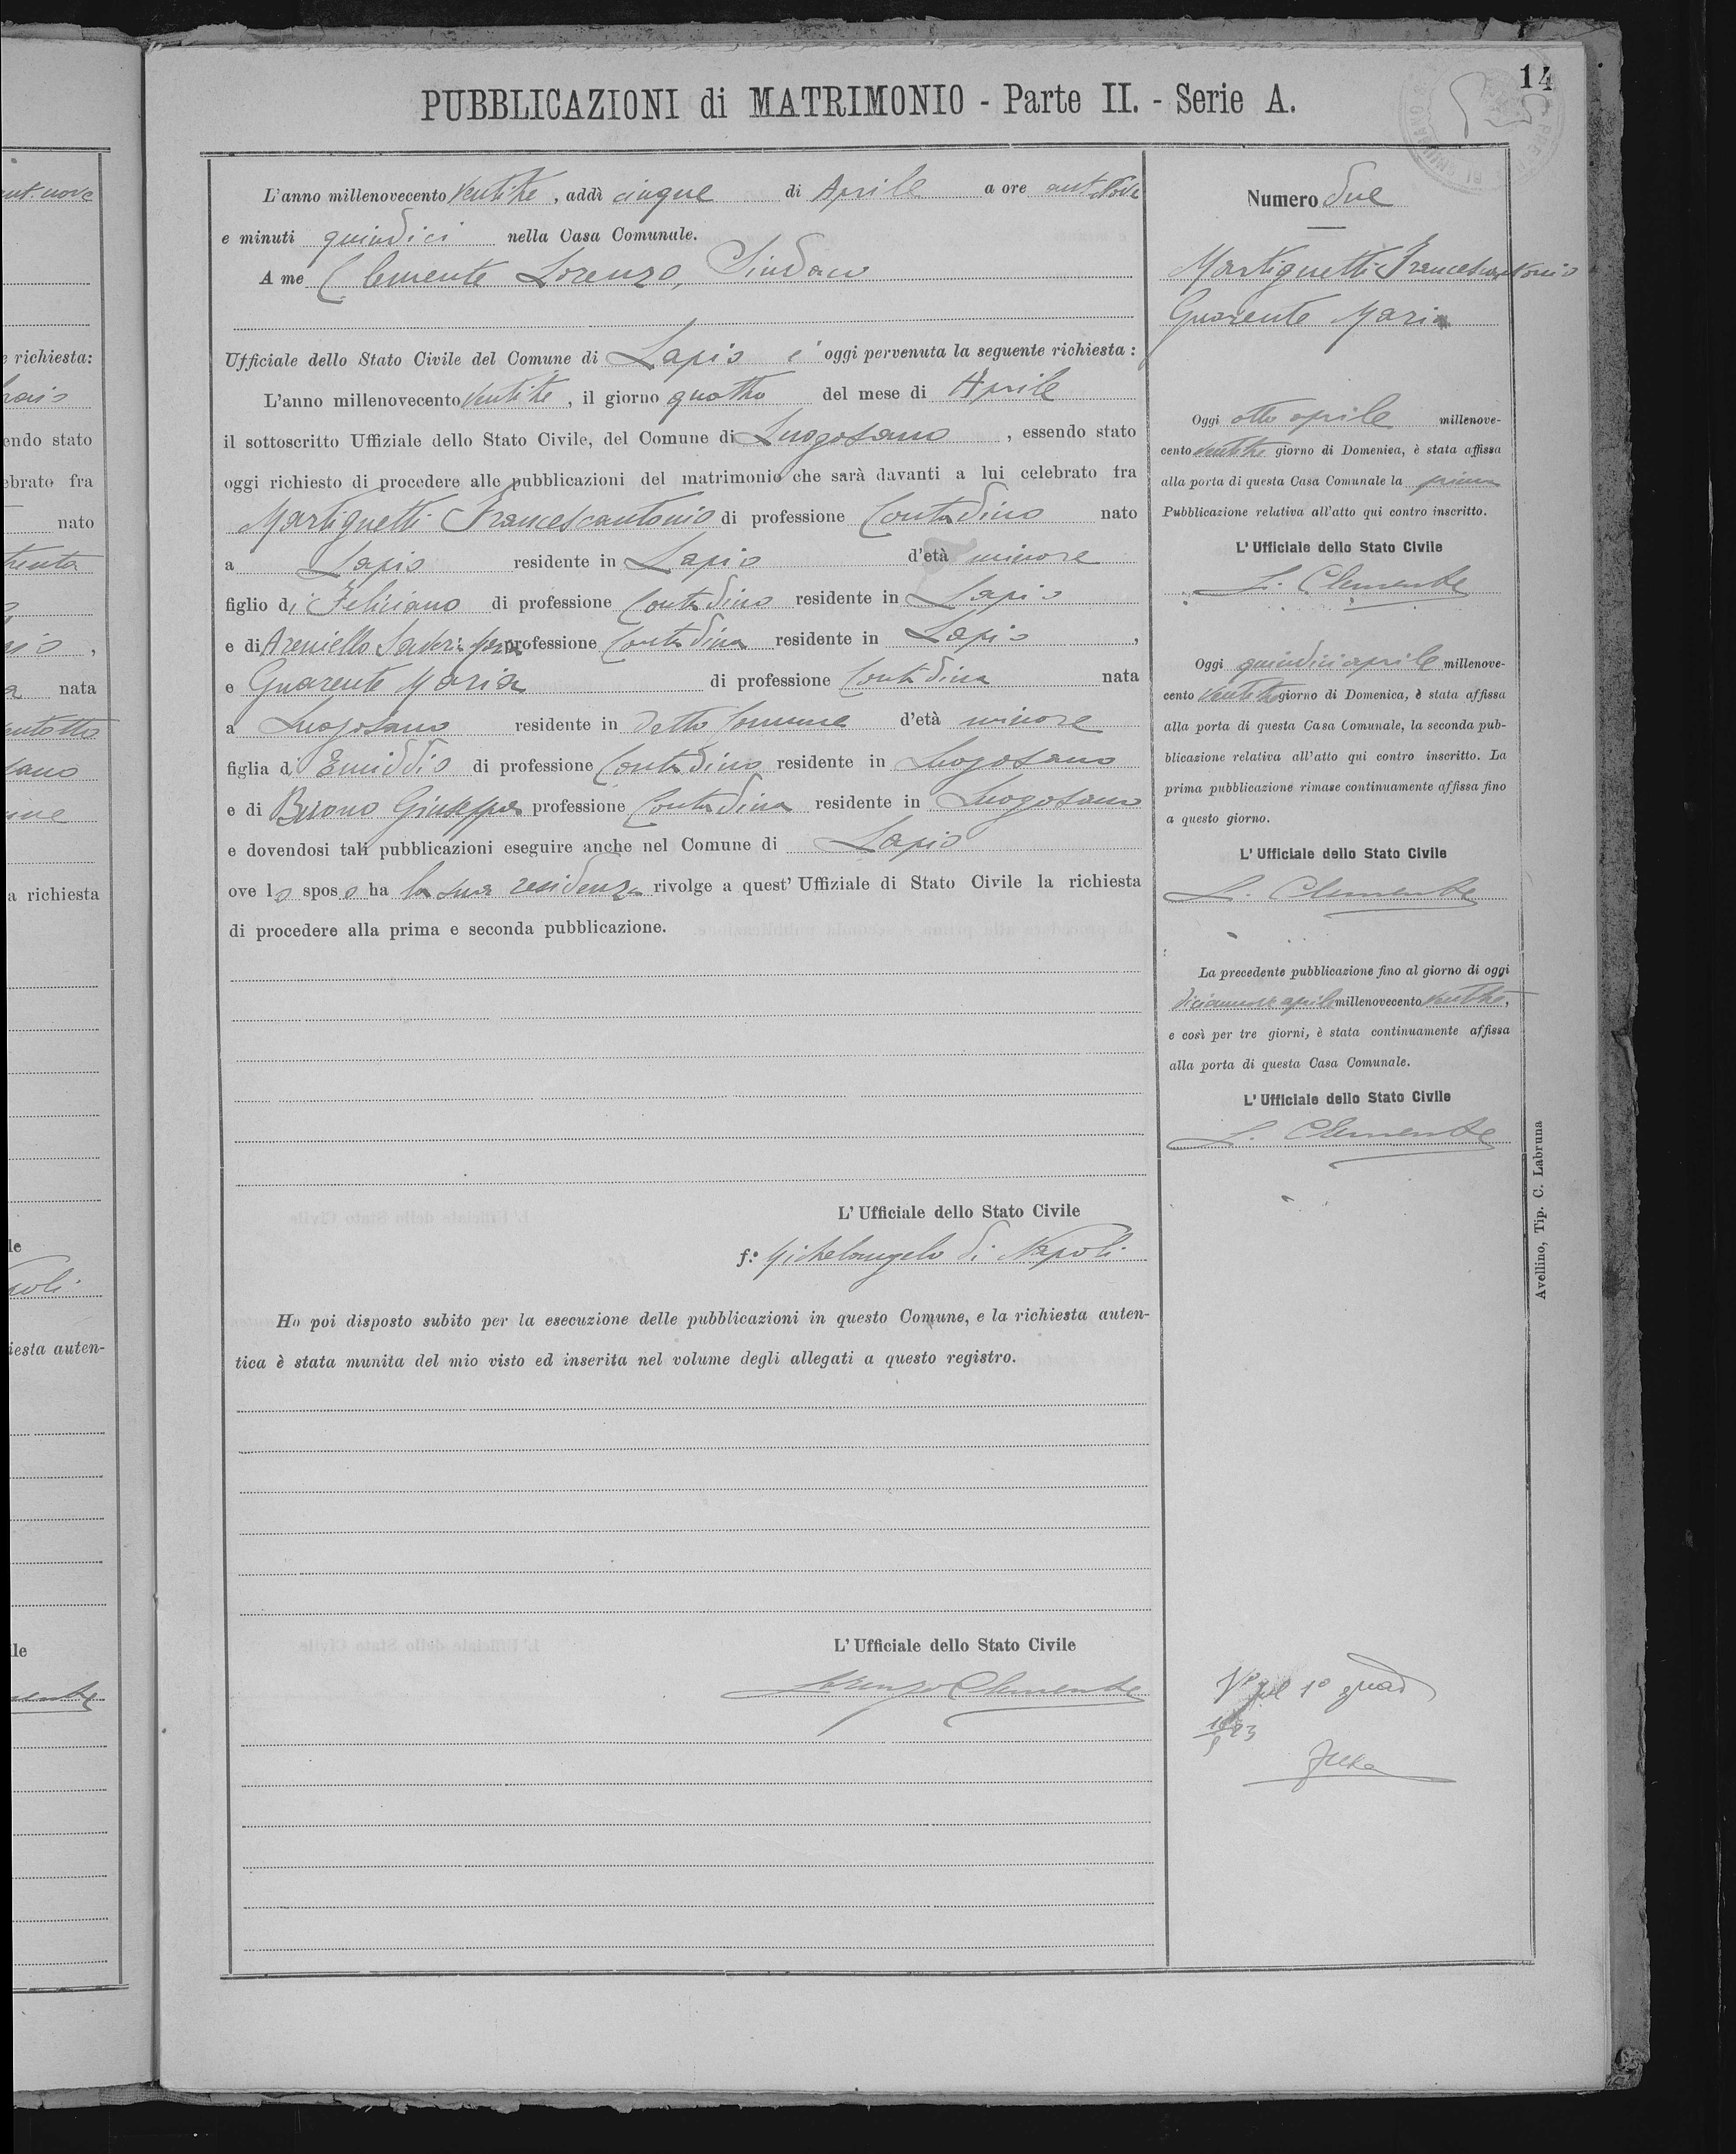 14
PUBBLICAZIONI di MATRIMONIO - Parte II. - Serie A.
L'anno millenovecento ventitre, addì cinque di Aprile a ore ant. nove
e minuti quindici nella Casa Comunale.
A me Clemente Lorenzo, Sindaco
Ufficiale dello Stato Civile del Comune di Lapio è oggi pervenuta la seguente richiesta:
L'anno millenovecento ventitre, il giorno quattro del mese di Aprile
il sottoscritto Uffiziale dello Stato Civile, del Comune di Luogosano, essendo stato
oggi richiesto di procedere alle pubblicazioni del matrimonio che sarà davanti a lui celebrato fra
Martignetti Francescantonio di professione Contadino nato
a Lapio residente in Lapio d'età minore
figlio di Feliciano di professione Contadino residente in Lapio
e di Areniello professione Contadina residente in Lapio,
e Guarente Maria di professione Contadina nata
a Luogosano residente in detto Comune d'età minore
figlia di Emiddio di professione Contadino residente in Luogosano
e di Giuseppa professione Contadina residente in Luogosano
e dovendosi tali pubblicazioni eseguire anche nel Comune di Lapio
ove lo sposo ha la sua residenza rivolge a quest' Uffiziale di Stato Civile la richiesta
di procedere alla prima e seconda pubblicazione.
L' Ufficiale dello Stato Civile
f.º Michelangelo di Napoli
Ho poi disposto subito per la esecuzione delle pubblicazioni in questo Comune, e la richiesta auten-
tica è stata munita del mio visto ed inserita nel volume degli allegati a questo registro.
L' Ufficiale dello Stato Civile
Lorenzo Clemente
Numero due
Martignetti Francescantonio
Guarente Maria
Oggi otto aprile millenove-
cento ventitre giorno di Domenica, è stata affissa
alla porta di questa Casa Comunale la prima
Pubblicazione relativa all'atto qui contro inscritto.
L' Ufficiale dello Stato Civile
L. Clemente
Oggi quindici aprile millenove-
cento ventitre giorno di Domenica, è stata affissa
alla porta di questa Casa Comunale, la seconda pub-
blicazione relativa all'atto qui contro inscritto. La
prima pubblicazione rimase continuamente affissa fino
a questo giorno.
L' Ufficiale dello Stato Civile
L. Clemente
La precedente pubblicazione fino al giorno di oggi
diciannove aprile millenovecento ventitre,
e così per tre giorni, è stata continuamente affissa
alla porta di questa Casa Comunale.
L' Ufficiale dello Stato Civile
L. Clemente
Avellino, Tip. C. Labruna
1º quad